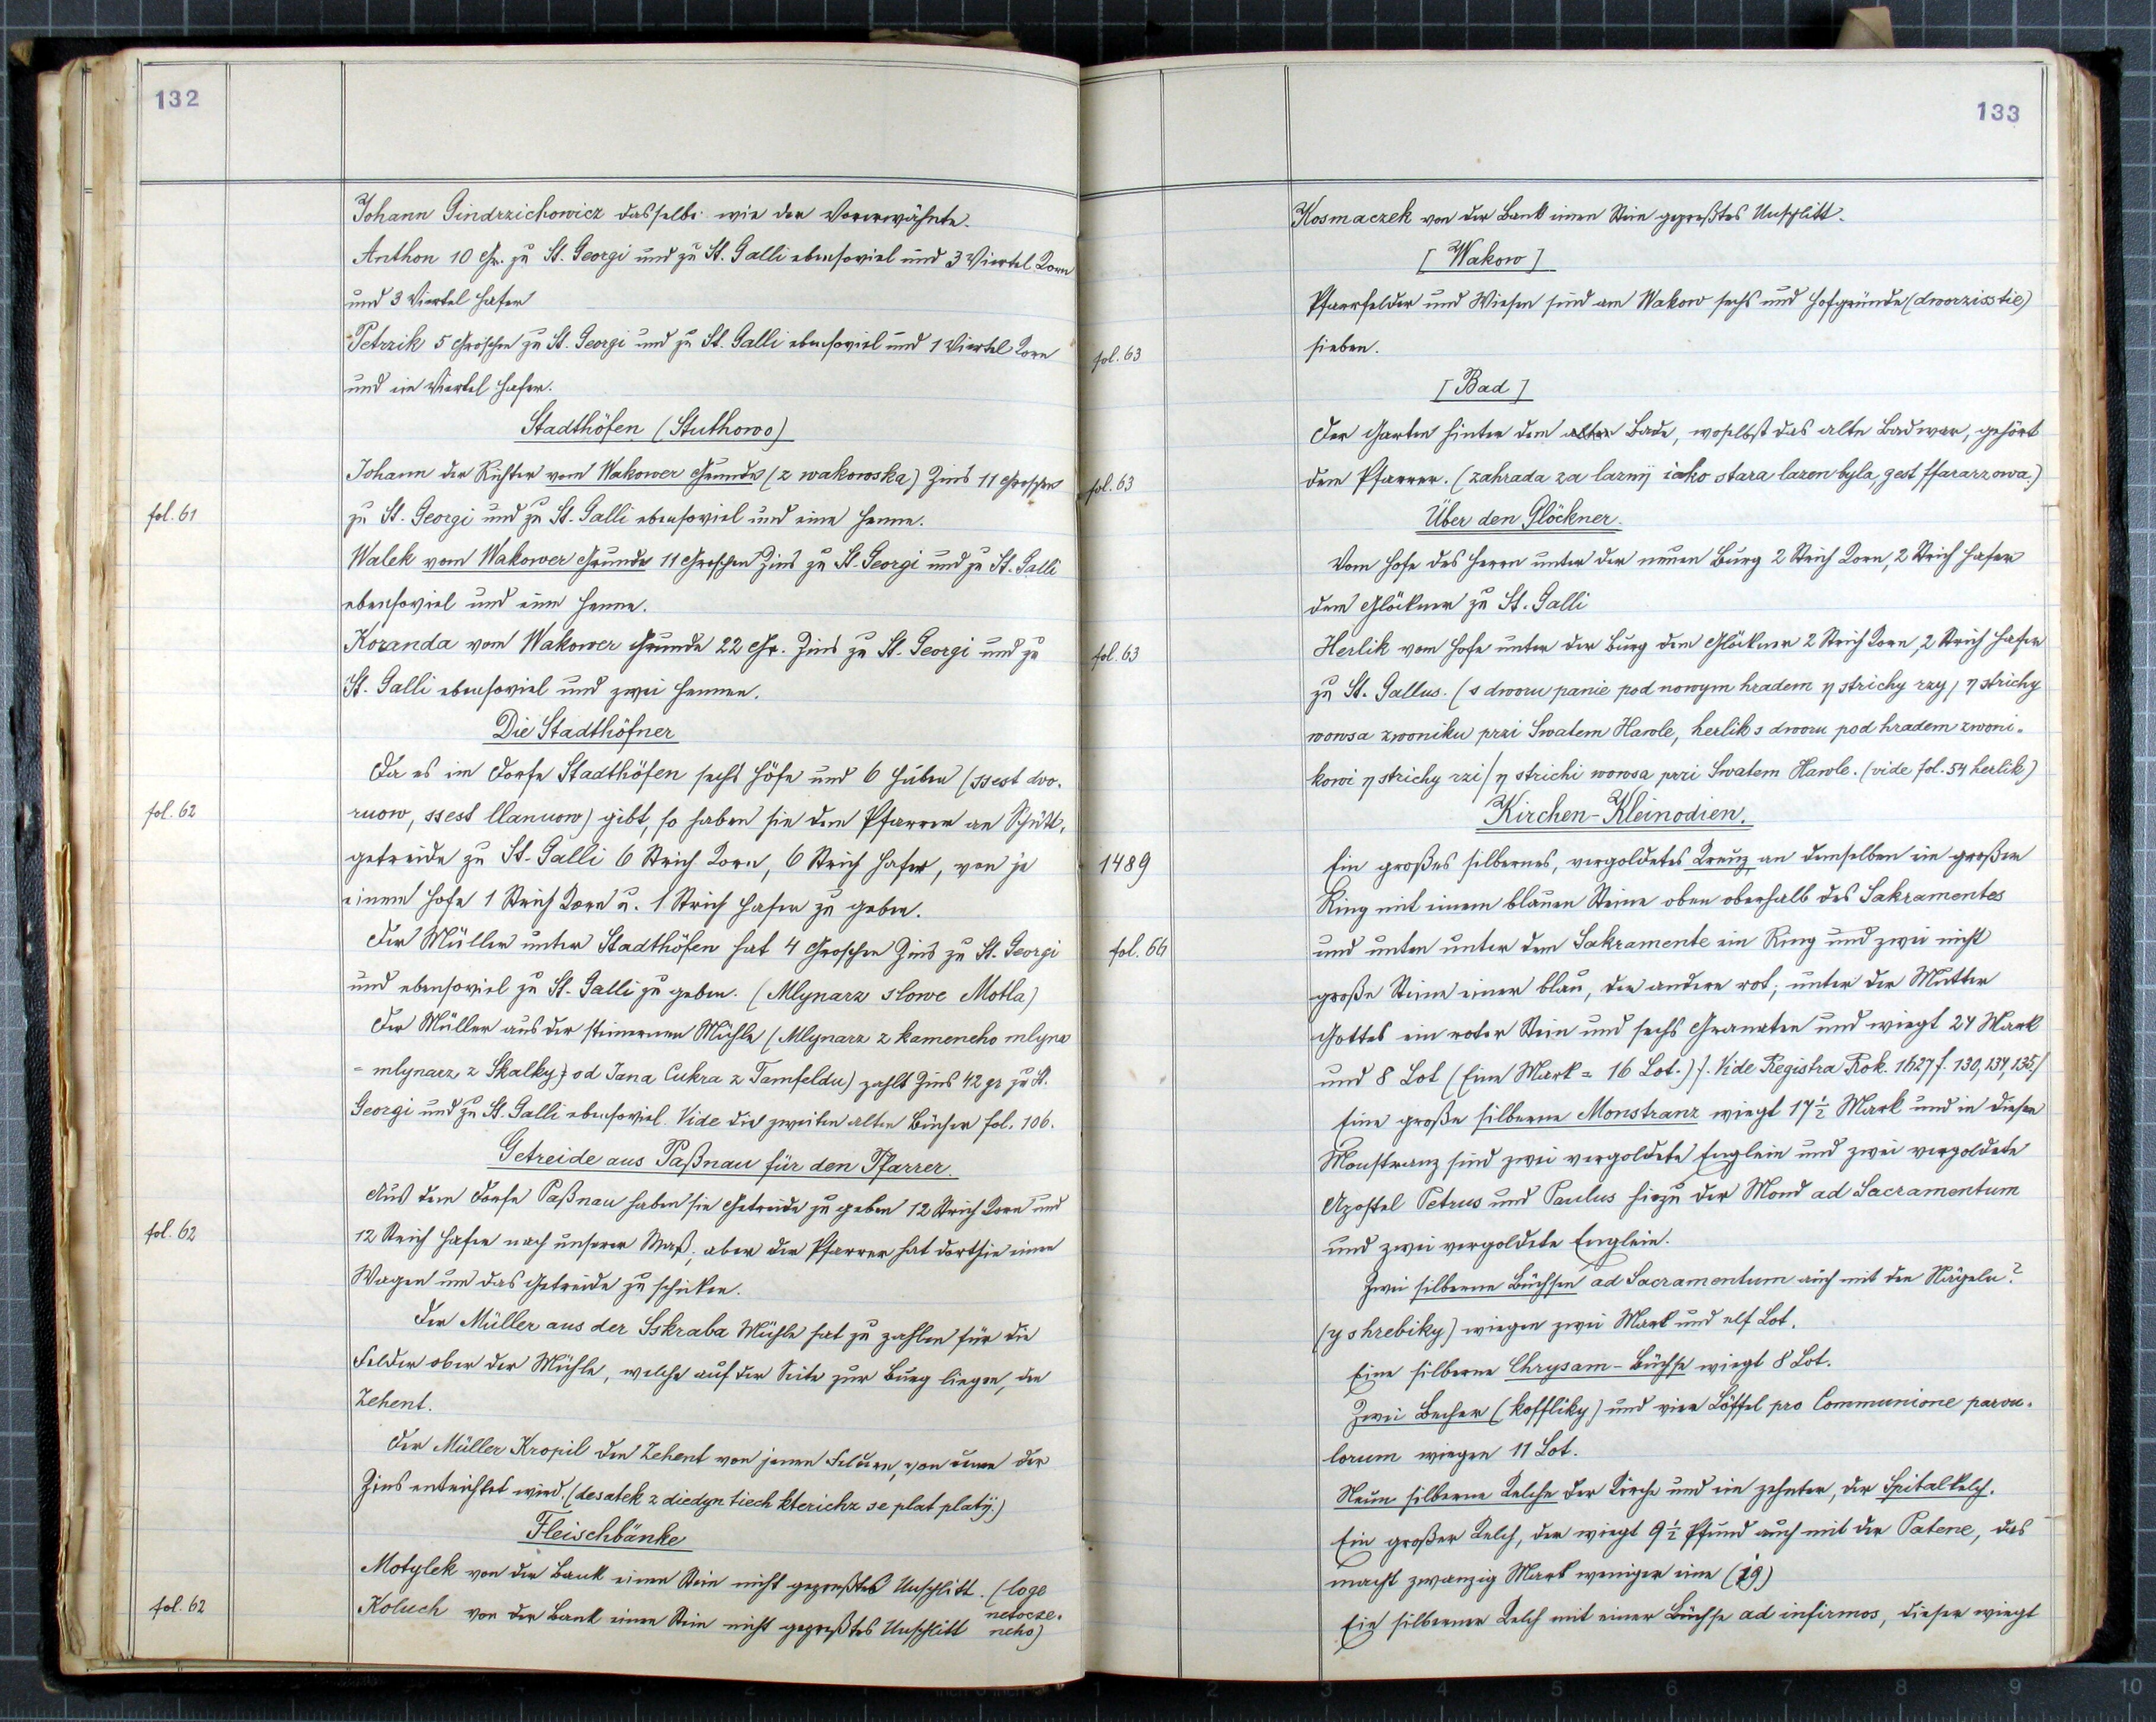 132
Johann Gindrzichowicz dasselbe wie der Vorerwähnte.
Anthon 10 Gr. zu St. Georgi und zu St. Galli ebensoviel und 3 Viertel Korn
und 3 Viertel Hafer
Petrzik 5 Groschen zu St. Georgi und zu St. Galli ebensoviel und 1 Viertel Korn
und ein Viertel Hafer.
Stadthöfen (Stuthowo)
Johann der Richter vom Wakower Grunde (z wakowska) Zins 11 Groschen
fol. 61 zu St. Georgi und zu St. Galli ebensoviel und eine Henne.
Walek vom Wakower Grunde 11 Groschen Zins zu St. Georgi und zu St. Galli
ebensoviel und eine Henne.
Koranda vom Wakower Grunde 22 Gr. Zins zu St. Georgi und zu
St. Galli ebensoviel und zwei Hennen.
Die Stadthöfner
Da es im Dorfe Stadthöfen sechs Höfe und 6 Huben (ssest dvo-
fol. 62 ruow, ssest llanuow) gibt, so haben sie dem Pfarrer an Schütt-
getreide zu St. Galli 6 Strich Korn, 6 Strich Hafer, von je
einem Hofe 1 Strich Korn u. 1 Strich Hafer zu geben.
Der Müller unter Stadthöfen hat 4 Groschen Zins zu St. Georgi
und ebensoviel zu St. Galli zu geben. (Mlynarz slowe Motla)
Der Müller aus der steinernen Mühle (Mlynarz z kameneho mlyna
= mlynarz z Skalky) od Jana Cukra z Tamfeldu) zahlt Zins 42 gr zu St.
Georgi und zu St. Galli ebensoviel. Vide die zweiten alten Bücher fol. 106.
Getreide aus Paßnau für den Pfarrer.
Aus dem Dorfe Paßnau haben sie Getreide zu geben 12 Strich Korn und
fol. 62 12 Strich Hafer nach unserer Maß; aber der Pfarrer hat dorthin einen
Wagen um das Getreide zu schicken.
Der Müller aus der Sskraba Mühle hat zu zahlen für die
Felder ober der Mühle, welche auf der Seite zur Burg liegen, den
Zehent.
Der Müller Kropil den Zehent von jenen Feldern, von denen der
Zins entrichtet wird. (desatek z diedyn tiech kterichz se plat platij.)
Fleischbänke
Motylek von der Bank einen Stein nicht gepreßtes Unschlitt. (loge
fol. 62 Koluch von der Bank einen Stein nicht gepreßtes Unschlitt netocze-
neho)
133
Kosmaczek von der Bank einen Stein gepreßtes Unschlitt.
[Wakow]
Pfarrfelder und Wiesen sind am Wakow sechs und Hofgründe (dworzisstie)
fol. 63 sieben.
[Bad]
Der Garten hinter dem alten Bade, woselbst das alte Bad war, gehört
fol. 63 dem Pfarrer. (zahrada za laznij iako stara lazen byla, gest ffararzowa)
Über den Glöckner.
Vom Hofe des Herrn unter der neuen Burg 2 Strich Korn, 2 Strich Hafer
dem Glöckner zu St. Galli
fol. 63 Herlik vom Hofe unter der Burg dem Glöckner 2 Strich Korn, 2 Strich Hafer
zu St. Gallus. (s dworu panie pod nowym hradem η strichy rzy, η strichy
wowsa zwoniku przi Swatem Hawle, herlik s dworu pod hradem zwoni-
kowi η strichy rzi / η strichi wowsa przi Swatem Hawle. (vide fol. 54 herlik)
Kirchen-Kleinodien.
1489 Ein großes silbernes, vergoldetes Kreuz an demselben ein großer
Ring mit einem blauen Steine oben oberhalb des Sakramentes
fol. 66 und unten unter dem Sakramente ein Ring und zwei nicht
große Steine einer blau, der andere rot; unter der Mutter
Gottes ein roter Stein und sechs Granaten und wiegt 24 Mark
und 8 Lot (Eine Mark = 16 Lot.) /. Vide Registra Rok. 1627 f. 130, 134, 135/
Eine große silberne Monstranz wiegt 17½ Mark und in dieser
Monstranz sind zwei vergoldete Englein und zwei vergoldete
Apostel Petrus und Paulus hiezu der Mond ad Sacramentum
und zwei vergoldete Englein.
Zwei silberne Büchsen ad Sacramentum auch mit den Nägeln?
(y shrebiky) wiegen zwei Mark und elf Lot.
Eine silberne Chrysam-Büchse wiegt 8 Lot.
Zwei Becher (koffliky) und vier Löffel pro Communione parvu-
lorum wiegen 11 Lot.
Neun silberne Kelche der Kirche und ein zehnter, der Spitalkelch.
Ein großer Kelch, der wiegt 9½ Pfund auch mit der Patene, das
macht zwanzig Mark weniger eine (19)
Ein silberner Kelch mit einer Büchse ad infirmos, dieser wiegt